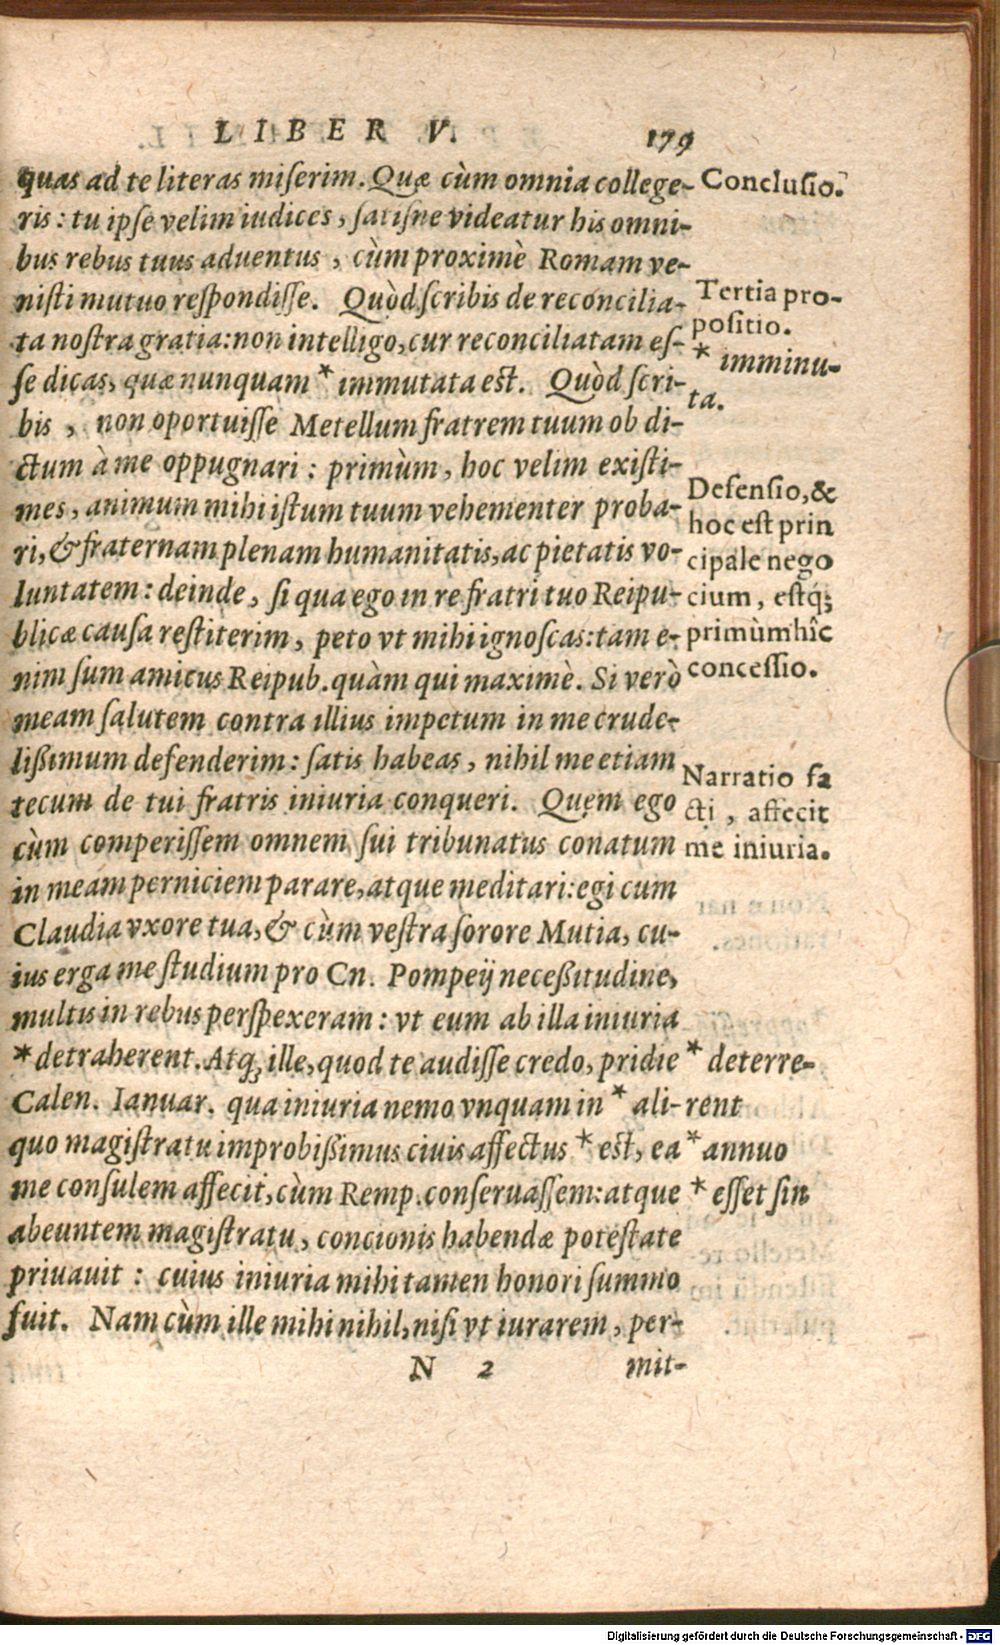 LIBER V. 179
quas ad te literas miserim. Quæ cùm omnia college-
ris: tu ipse velim iudices, satisne videatur his omni-
bus rebus tuus aduentus, cùm proximè Romam ve-
nisti mutuo respondisse. Quòd scribis de reconcilia-
ta nostra gratia: non intelligo, cur reconciliatam es-
se dicas, quæ nunquam * immutata est. Quòd scri-
bis, non oportuisse Metellum fratrem tuum ob di-
ctum à me oppugnari: primùm, hoc velim existi-
mes, animum mihi istum tuum vehementer proba-
ri, & fraternam plenam humanitatis, ac pietatis vo-
luntatem: deinde, si qua ego in re fratri tuo Reipu-
blicæ causa restiterim, peto vt mihi ignoscas: tam e-
nim sum amicus Reipub. quàm qui maximè. Si verò
meam salutem contra illius impetum in me crude-
lißimum defenderim: satis habeas, nihil me etiam
tecum de tui fratris iniuria conqueri. Quem ego
cùm comperissem omnem sui tribunatus conatum
in meam perniciem parare, atque meditari: egi cum
Claudia vxore tua, & cùm vestra sorore Mutia, cu-
ius erga me studium pro Cn. Pompeij neceßitudine,
multis in rebus perspexeram: vt eum ab illa iniuria
* detraherent. Atq; ille, quod te audisse credo, pridie
Calen. Ianuar. qua iniuria nemo vnquam in * ali-
quo magistratu improbißimus ciuis affectus * est, ea
me consulem affecit, cùm Remp. conseruassem: atque
abeuntem magistratu, concionis habendæ potestate
priuauit: cuius iniuria mihi tamen honori summo
fuit. Nam cùm ille mihi nihil, nisi vt iurarem, per-
N 2 mit-
Conclusio.
Tertia pro-
positio.
* imminu-
ta.
Defensio, &
hoc est prin
cipale nego
cium, estq;
primùm hîc
concessio.
Narratio fa
cti, affecit
me iniuria.
* deterre-
rent
* annuo
* esset sin
Digitalisierung gefördert durch die Deutsche Forschungsgemeinschaft - DFG